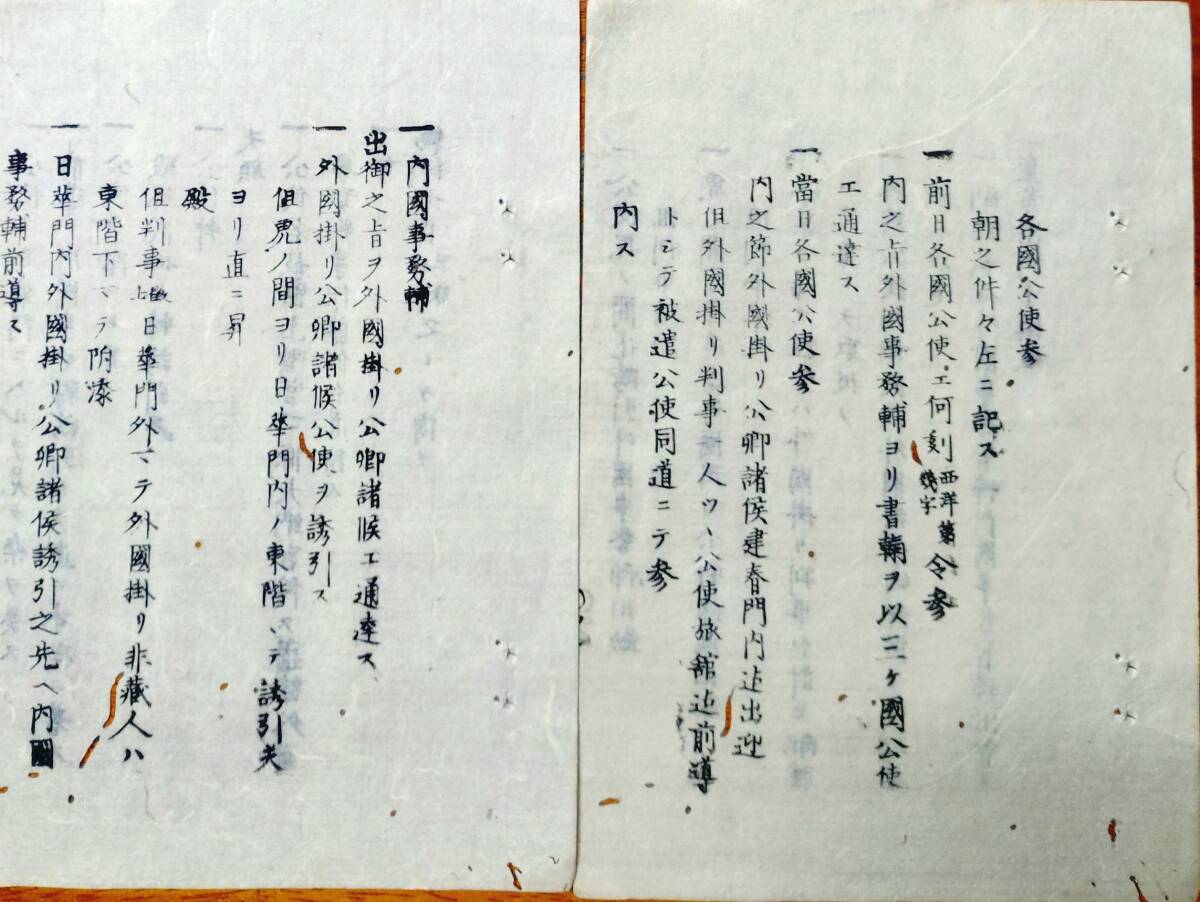 各國公使参
朝之件々左ニ記ス
一 前日各國公使エ何刻西洋第幾字令参
内之旨外國事務輔ヨリ書翰ヲ以三ケ國公使
エ通達ス
一 當日各國公使参
内之節外國掛リ公卿諸侯建春門内迠出迎
但外國掛リ判事 人ツヽ公使旅舘迠前導
トシテ被遣公使同道ニテ参
内ス
一 内國事務輔
出御之旨ヲ外國掛リ公卿諸侯エ通達ス
一 外國掛リ公卿諸侯公使ヲ誘引ス
但鳬ノ間ヨリ日華門内ノ東階ヽテ誘引夫
ヨリ直ニ昇
殿
但判事 日華門外マテ外國掛リ非藏人ハ
東階下マテ附添
一 日華門内外國掛リ公卿諸侯誘引之先ヘ内國
事務輔前導ス